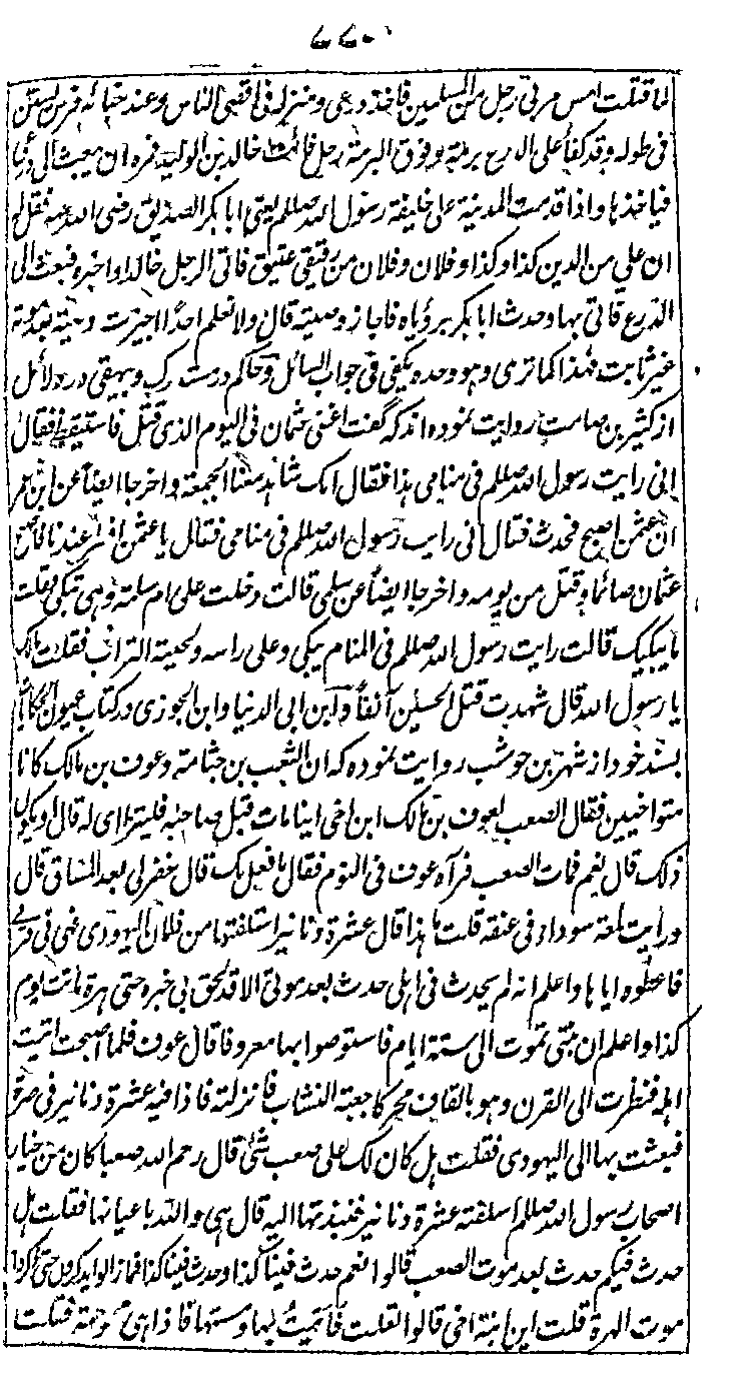 ۷۷۰
لما قتلت امس مر بی رجل من المسلمین فاخذ درعی و منزله فی اقصی الناس و عند خبائه فرس یستن
فی طوله و قد کفأ علی الدرع برمة و فوق البرمة رجل فائت خالد بن الولید فمره ان یبعث الی درعی
فیاخذها و اذا قدمت المدینة علی خلیفة رسول الله صللم یعنی ابا بکر الصدیق رضی الله عنه فقل له
ان علی من الدین کذا و کذا و فلان و فلان من رقیقی عتیق فاتی الرجل خالدا و اخبره فبعث الی
الدرع فاتی بها و حدث ابا بکر برؤیاه فاجاز وصیته قال و لا نعلم احدًا اجیزت وصیته بعد موته
غیر ثابت فهذا کما تری و هو وحده یکفی فی جواب السائل و حاکم در مستدرک و بیهقی در دلائل
از کثیر بن صامت روایت نموده اند که گفت اغفی عثمان فی الیوم الذی قتل فاستیقظ فقال
انی رایت رسول الله صللم فی منامی هذا فقال انک شاهد معنا الجمعة و اخرجا ایضاً عن ابن عمر
ان عثمن اصبح فحدث فقال انی رایت رسول الله صللم فی منامی فقال یا عثمن افطر عندنا فاصبح
عثمان صائما و قتل من یومه و اخرجا ایضاً عن سلمی قالت دخلت علی ام سلمة و هی تبکی فقلت
ما یبکیک قالت رایت رسول الله صللم فی المنام یبکی و علی راسه و لحیته التراب فقلت مالک
یا رسول الله قال شهدت قتل الحسین آنفاً و ابن ابی الدنیا و ابن الجوزی در کتاب عیون الحکایا
بسند خود از شهر بن حوشب روایت نموده که ان الصعب بن جثامة و عوف بن مالک کانا
متواخیین فقال الصعب لعوف بن مالک ابن اخی اینا مات قبل صاحبه فلیتراای له قال او یکون
ذلک قال نعم فمات الصعب فرآه عوف فی النوم فقال ما فعل بک قال غفر لی بعد المشاق قال
و رایت لمعة سوداء فی عنقه قلت ما هذا قال عشرة دنانیر استلفتها من فلان الیهودی فهی فی قرنی
فاعطوه ایاها و اعلم انه لم یحدث فی اهلی حدث بعد موتی الا قد لحق بی خبره حتی هرة ماتت یوم
کذا و اعلم ان بنتی تموت الی ستة ایام فاستوصوا بها معروفا قال عوف فلما اصبحت اتیت
اهله فنظرت الی القرن و هو بالقاف محرکا جعبة النشاب فانزلته فاذا فیه عشرة دنانیر فی صرة
فبعثت بها الی الیهودی فقلت هل کان لک علی صعب شئ قال رحم الله صعبا کان من خیار
اصحاب رسول الله صللم اسلفته عشرة دنانیر فنبذتها الیه قال هی و الله باعیانها فقلت هل
حدث فیکم حدث بعد موت الصعب قالوا نعم حدث فینا کذا و حدث فینا کذا فما زالوا یذکرون حتی ذکروا
موت الهرة قلت این ابنة اخی قالوا تلعب فاتیت بها و مستها فاذا هی محمومة فقلت